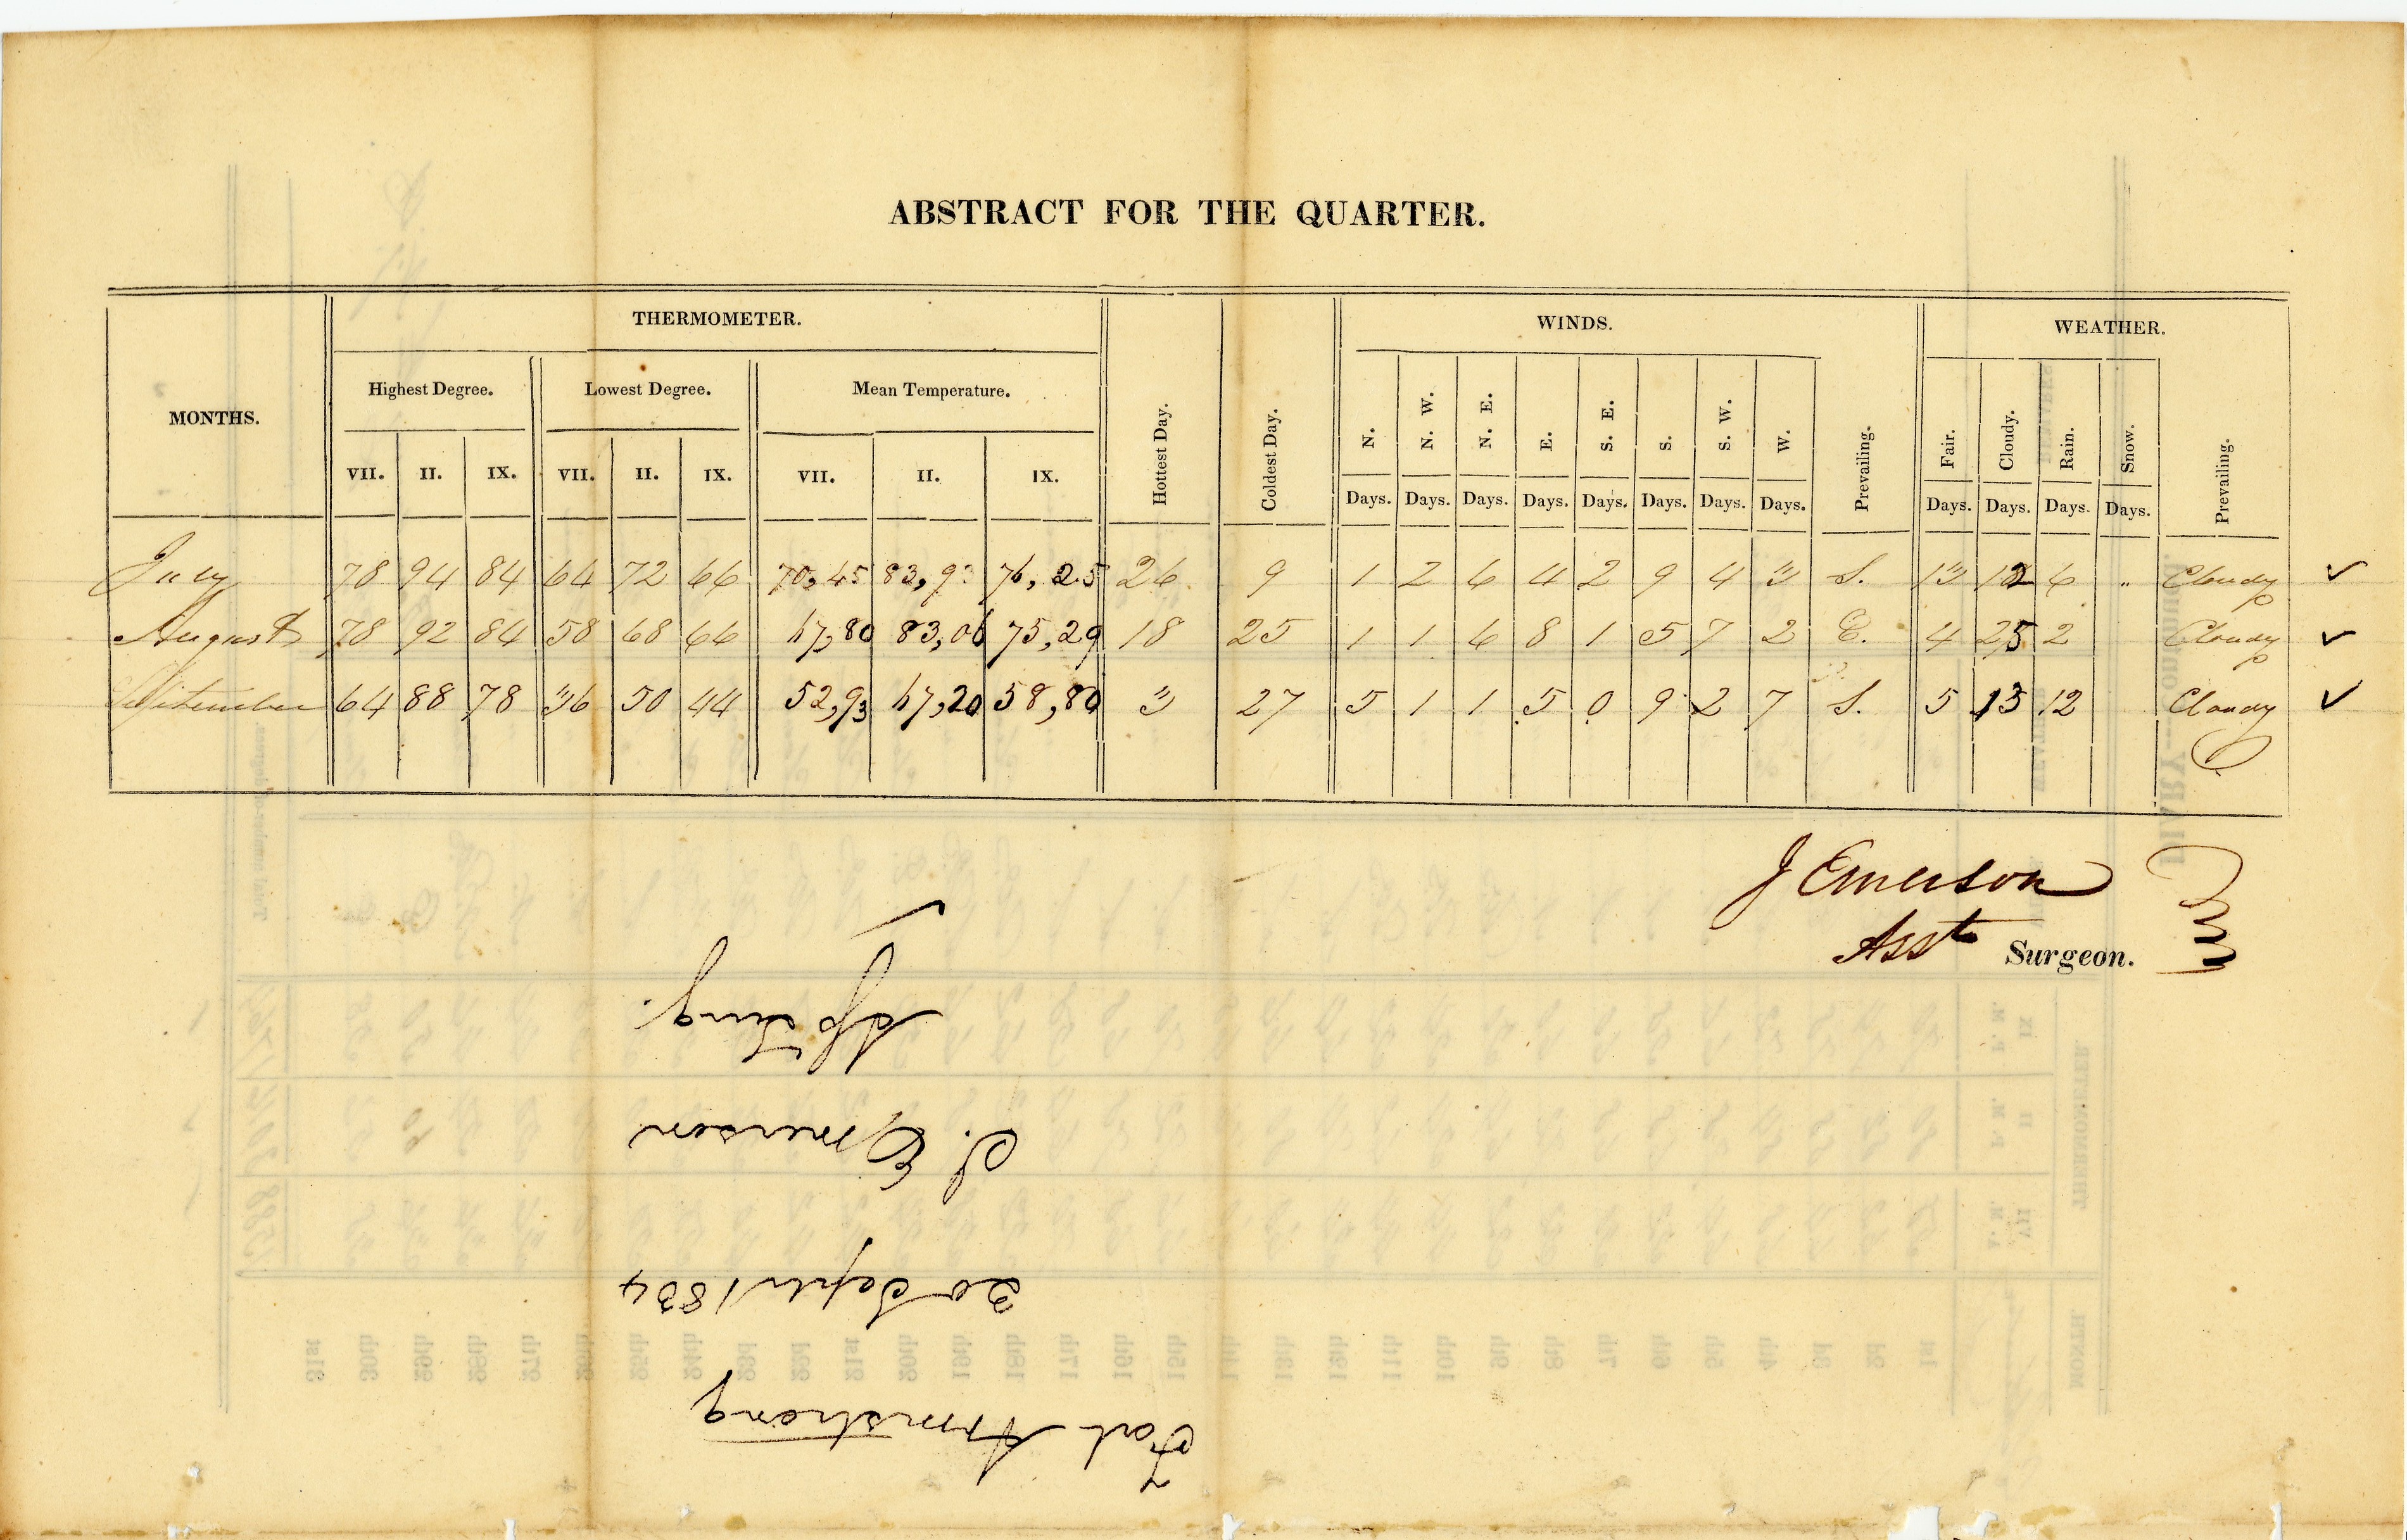 ABSTRACT FOR THE QUARTER.
MONTHS. THERMOMETER. Hottest Day. Coldest Day. WINDS. WEATHER.
Highest Degree. Lowest Degree. Mean Temperature.
N. N. W. N. E. E. S. E. S. S. W. W. Prevailing. Fair. Cloudy. Rain. Snow. Prevailing.
VII. II. IX. VII. II. IX. VII. II. IX. Days. Days. Days. Days. Days. Days. Days. Days. Days. Days. Days. Days.
July 78 94 84 64 72 66 70,45 83,9 76,25 26 9 1 2 6 4 2 9 4 3 S. 13 12 6 " Cloudy ✓
August 78 92 84 58 68 66 67,80 83,06 75,29 18 25 1 1 6 8 1 5 7 2 E. 4 25 2 Cloudy ✓
September 64 88 78 36 50 44 52,93 67,20 58,80 3 27 5 1 1 5 0 9 2 7 S. 5 13 12 Cloudy ✓
J Emerson
Asst Surgeon.
Fort Armstrong
30 Septr 1834
J. Emerson